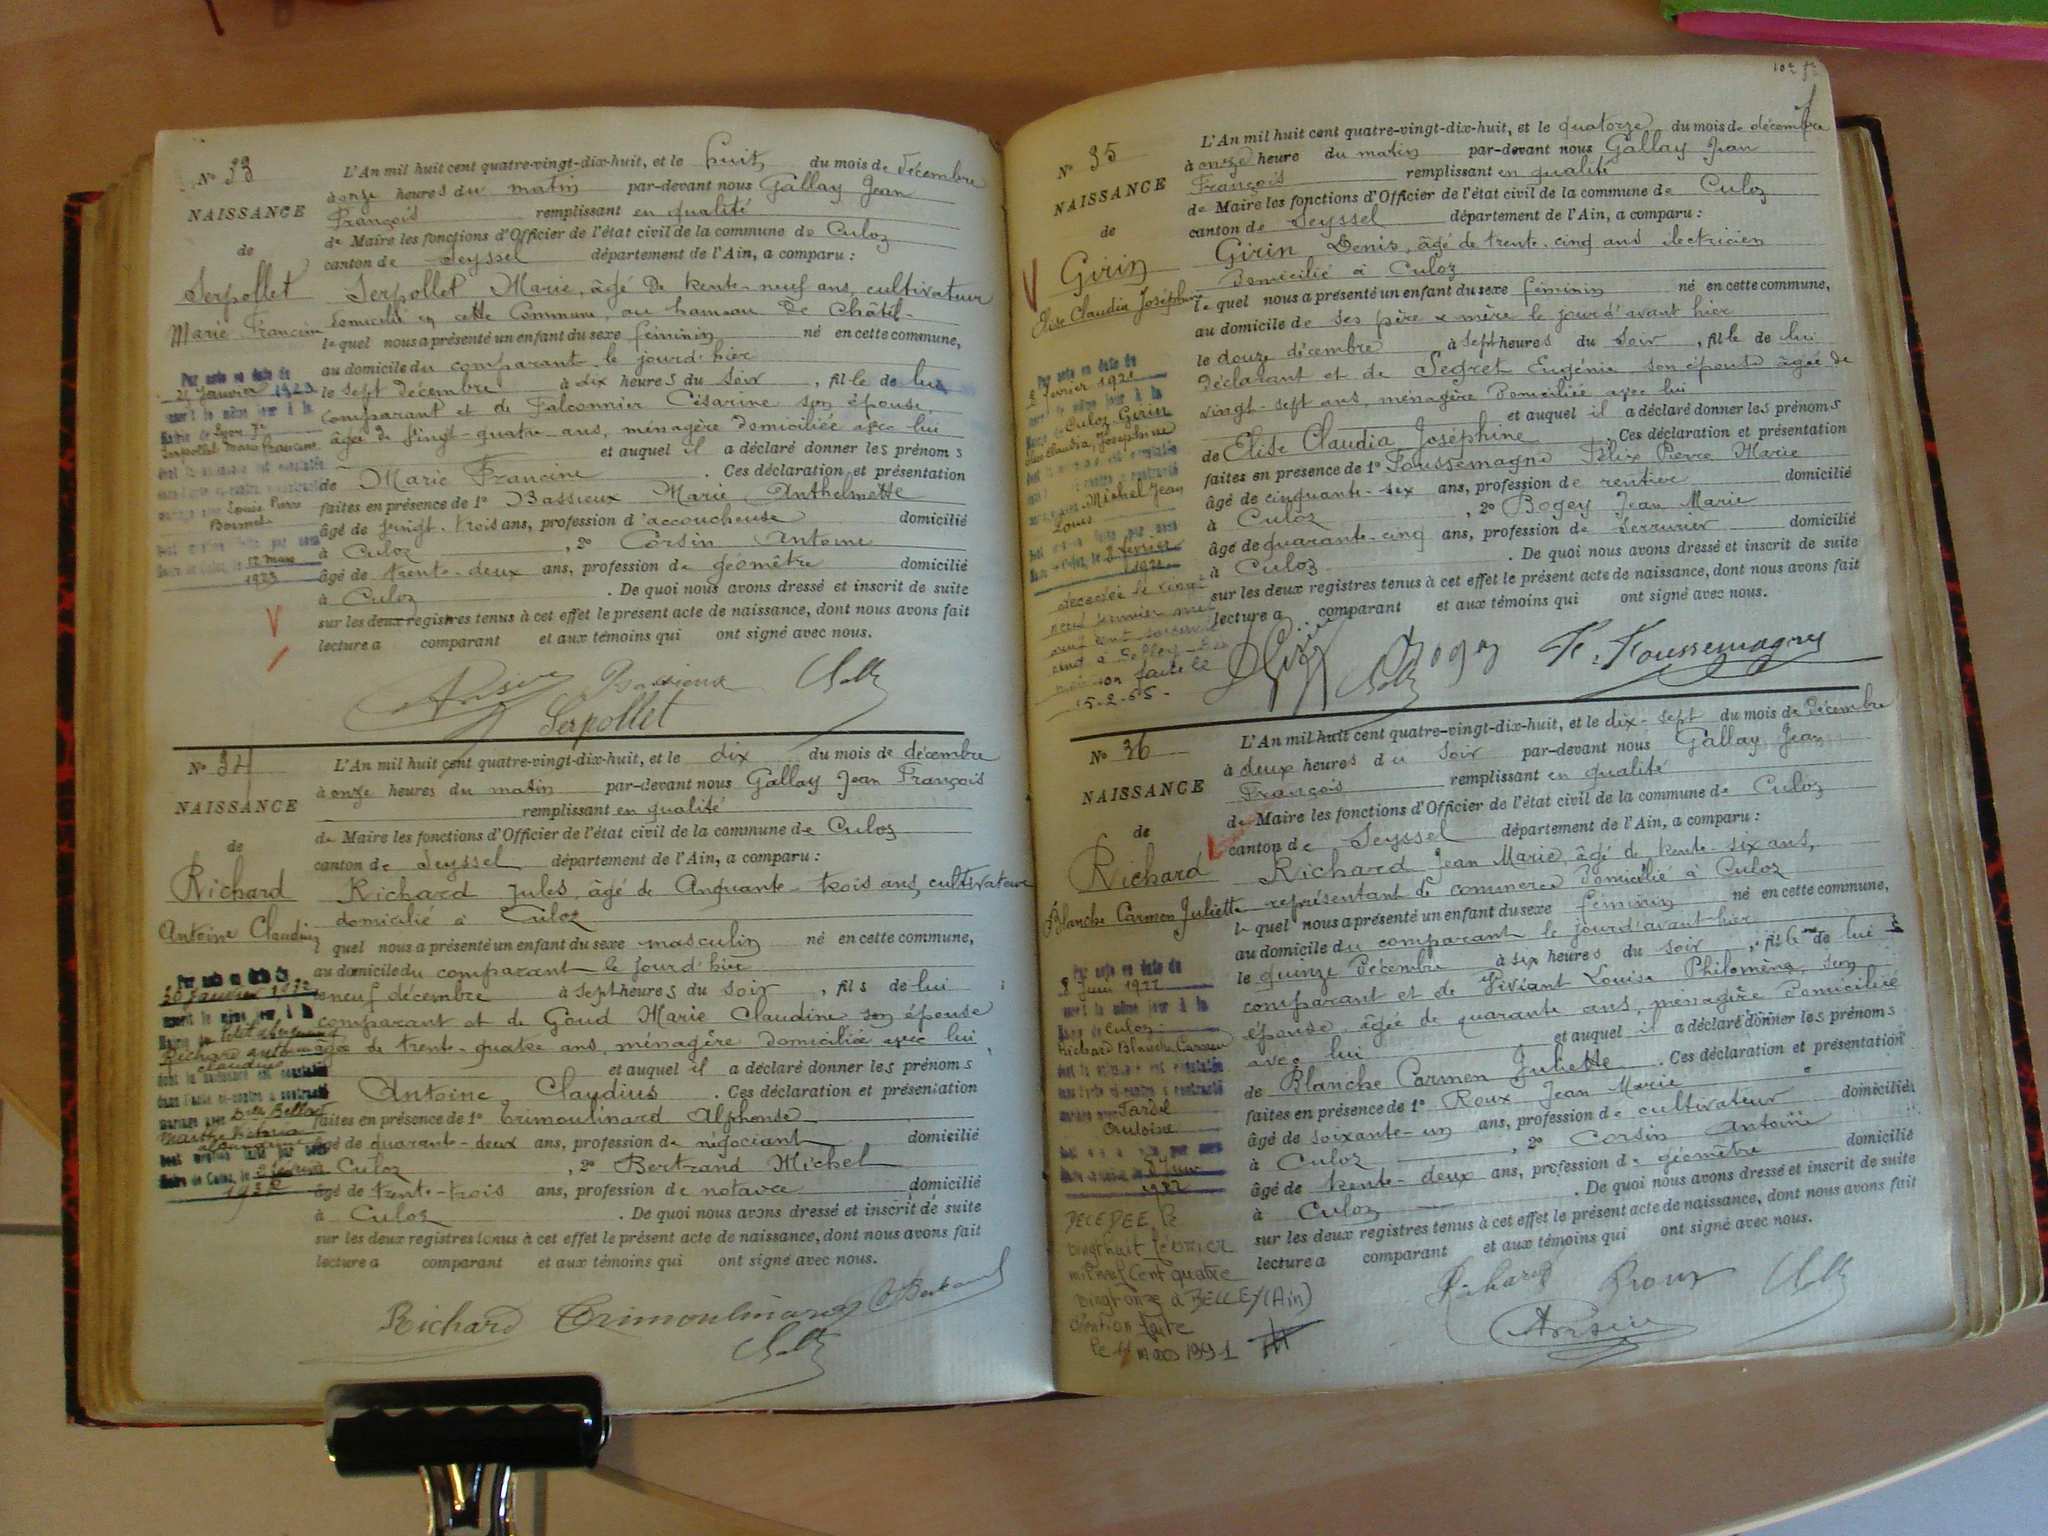 N° 33
NAISSANCE
de
Serpollet
Marie Francine
L'An mil huit cent quatre-vingt-dix-huit, et le huit du mois de décembre
à onze heures du matin par-devant nous Gallay Jean
François remplissant en qualité
de Maire les fonctions d'Officier de l'état civil de la commune de Culoz
canton de Seyssel département de l'Ain, a comparu :
Serpollet Marie, âgé de trente-neuf ans, cultivateur
domicilié en cette Commune, au hameau de Châtil-
lequel nous a présenté un enfant du sexe féminin né en cette commune,
au domicile du comparant le jour d'hier
le sept décembre à dix heures du soir, fille de lui
comparant et de Falconnier Césarine son épouse,
âgé de vingt-quatre ans, ménagère domiciliée avec lui
et auquel il a déclaré donner les prénoms
de Marie Francine . Ces déclaration et présentation
faites en présence de 1° Bassieux Marie Anthelmette
âgé de vingt-trois ans, profession d'accoucheuse domicilié
à Culoz , 2° Corsin Antoine
âgé de trente-deux ans, profession de géomètre domicilié
à Culoz . De quoi nous avons dressé et inscrit de suite
sur les deux registres tenus à cet effet le présent acte de naissance, dont nous avons fait
lecture a comparant et aux témoins qui ont signé avec nous.
Par acte en date du
Janvier 1923
inscrit le même jour à la
Serpollet Marie Francine
12 mars
1923
Bassieux
Serpollet
N° 34
NAISSANCE
de
Richard
Antoine Claudius
L'An mil huit cent quatre-vingt-dix-huit, et le dix du mois de décembre
à onze heures du matin par-devant nous Gallay Jean François
remplissant en qualité
de Maire les fonctions d'Officier de l'état civil de la commune de Culoz
canton de Seyssel département de l'Ain, a comparu :
Richard Jules, âgé de cinquante-trois ans, cultivateur
domicilié à Culoz
lequel nous a présenté un enfant du sexe masculin né en cette commune,
au domicile du comparant le jour d'hier
le neuf décembre à sept heures du soir, fils de lui
comparant et de Goud Marie Claudine son épouse
âgée de trente-quatre ans, ménagère domiciliée avec lui
et auquel il a déclaré donner les prénoms
Antoine Claudius . Ces déclaration et présentation
faites en présence de 1° Trimoulinard Alphonse
âgé de quarante-deux ans, profession de négociant domicilié
à Culoz , 2° Bertrand Michel
âgé de trente-trois ans, profession de notaire domicilié
à Culoz . De quoi nous avons dressé et inscrit de suite
sur les deux registres tenus à cet effet le présent acte de naissance, dont nous avons fait
lecture a comparant et aux témoins qui ont signé avec nous.
Par acte en date du
inscrit le même jour à la
Richard Antoine
Claudius
Richard Trimoulinard
N° 35
NAISSANCE
de
Girin
Elise Claudia Joséphine
L'An mil huit cent quatre-vingt-dix-huit, et le quatorze du mois de décembre
à onze heure du matin par-devant nous Gallay Jean
François remplissant en qualité
de Maire les fonctions d'Officier de l'état civil de la commune de Culoz
canton de Seyssel département de l'Ain, a comparu :
Girin Denis, âgé de trente-cinq ans électricien
domicilié à Culoz
lequel nous a présenté un enfant du sexe féminin né en cette commune,
au domicile de ses père & mère le jour d'avant hier
le douze décembre à sept heures du soir, fille de lui
déclarant et de Segret Eugénie son épouse âgée de
vingt-sept ans, ménagère domiciliée avec lui
et auquel il a déclaré donner les prénoms
de Elise Claudia Joséphine . Ces déclaration et présentation
faites en présence de 1° Toussemagne Félix Pierre Marie
âgé de cinquante-six ans, profession de rentier domicilié
à Culoz , 2° Bogey Jean Marie
âgé de quarante-cinq ans, profession de serrurier domicilié
à Culoz . De quoi nous avons dressé et inscrit de suite
sur les deux registres tenus à cet effet le présent acte de naissance, dont nous avons fait
lecture a comparant et aux témoins qui ont signé avec nous.
Par acte en date du
février 1921
inscrit le même jour à la
Culoz Girin
Elise Claudia, Joséphine
Michel Jean
Louis
février
1921
décédée le vingt
neuf janvier mil
neuf cent
faite le
15-2-55-
Bogey
N° 36
NAISSANCE
de
Richard
Blanche Carmen Juliette
L'An mil huit cent quatre-vingt-dix-huit, et le dix-sept du mois de décembre
à deux heures du soir par-devant nous Gallay Jean
François remplissant en qualité
de Maire les fonctions d'Officier de l'état civil de la commune de Culoz
canton de Seyssel département de l'Ain, a comparu :
Richard Jean Marie, âgé de trente-six ans,
représentant de commerce domicilié à Culoz
lequel nous a présenté un enfant du sexe féminin né en cette commune,
au domicile du comparant le jour d'avant hier
le quinze décembre à six heures du soir, fille de lui
comparant et de Viviant Louise Philomène, son
épouse âgée de quarante ans, ménagère domiciliée
avec lui et auquel il a déclaré donner les prénoms
de Blanche Carmen Juliette . Ces déclaration et présentation
faites en présence de 1° Roux Jean Marie
âgé de soixante-un ans, profession de cultivateur domicilié
à Culoz , 2° Corsin Antoine
âgé de trente-deux ans, profession de géomètre domicilié
à Culoz . De quoi nous avons dressé et inscrit de suite
sur les deux registres tenus à cet effet le présent acte de naissance, dont nous avons fait
lecture a comparant et aux témoins qui ont signé avec nous.
Par acte en date du
Juin 1922
inscrit le même jour à la
Culoz
Richard Blanche Carmen
Tardil
Antoine
1922
DECEDEE le
vingt huit février
mil neuf cent quatre
vingt onze à BELLEY (Ain)
Mention faite
le 11 mars 1991
Richard Roux